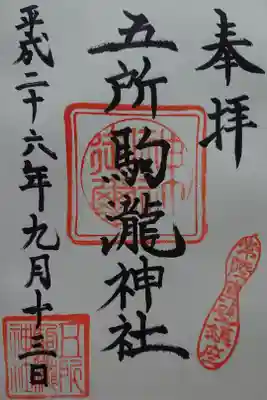 奉拝
五所駒瀧神社
平成二十六年九月十三日